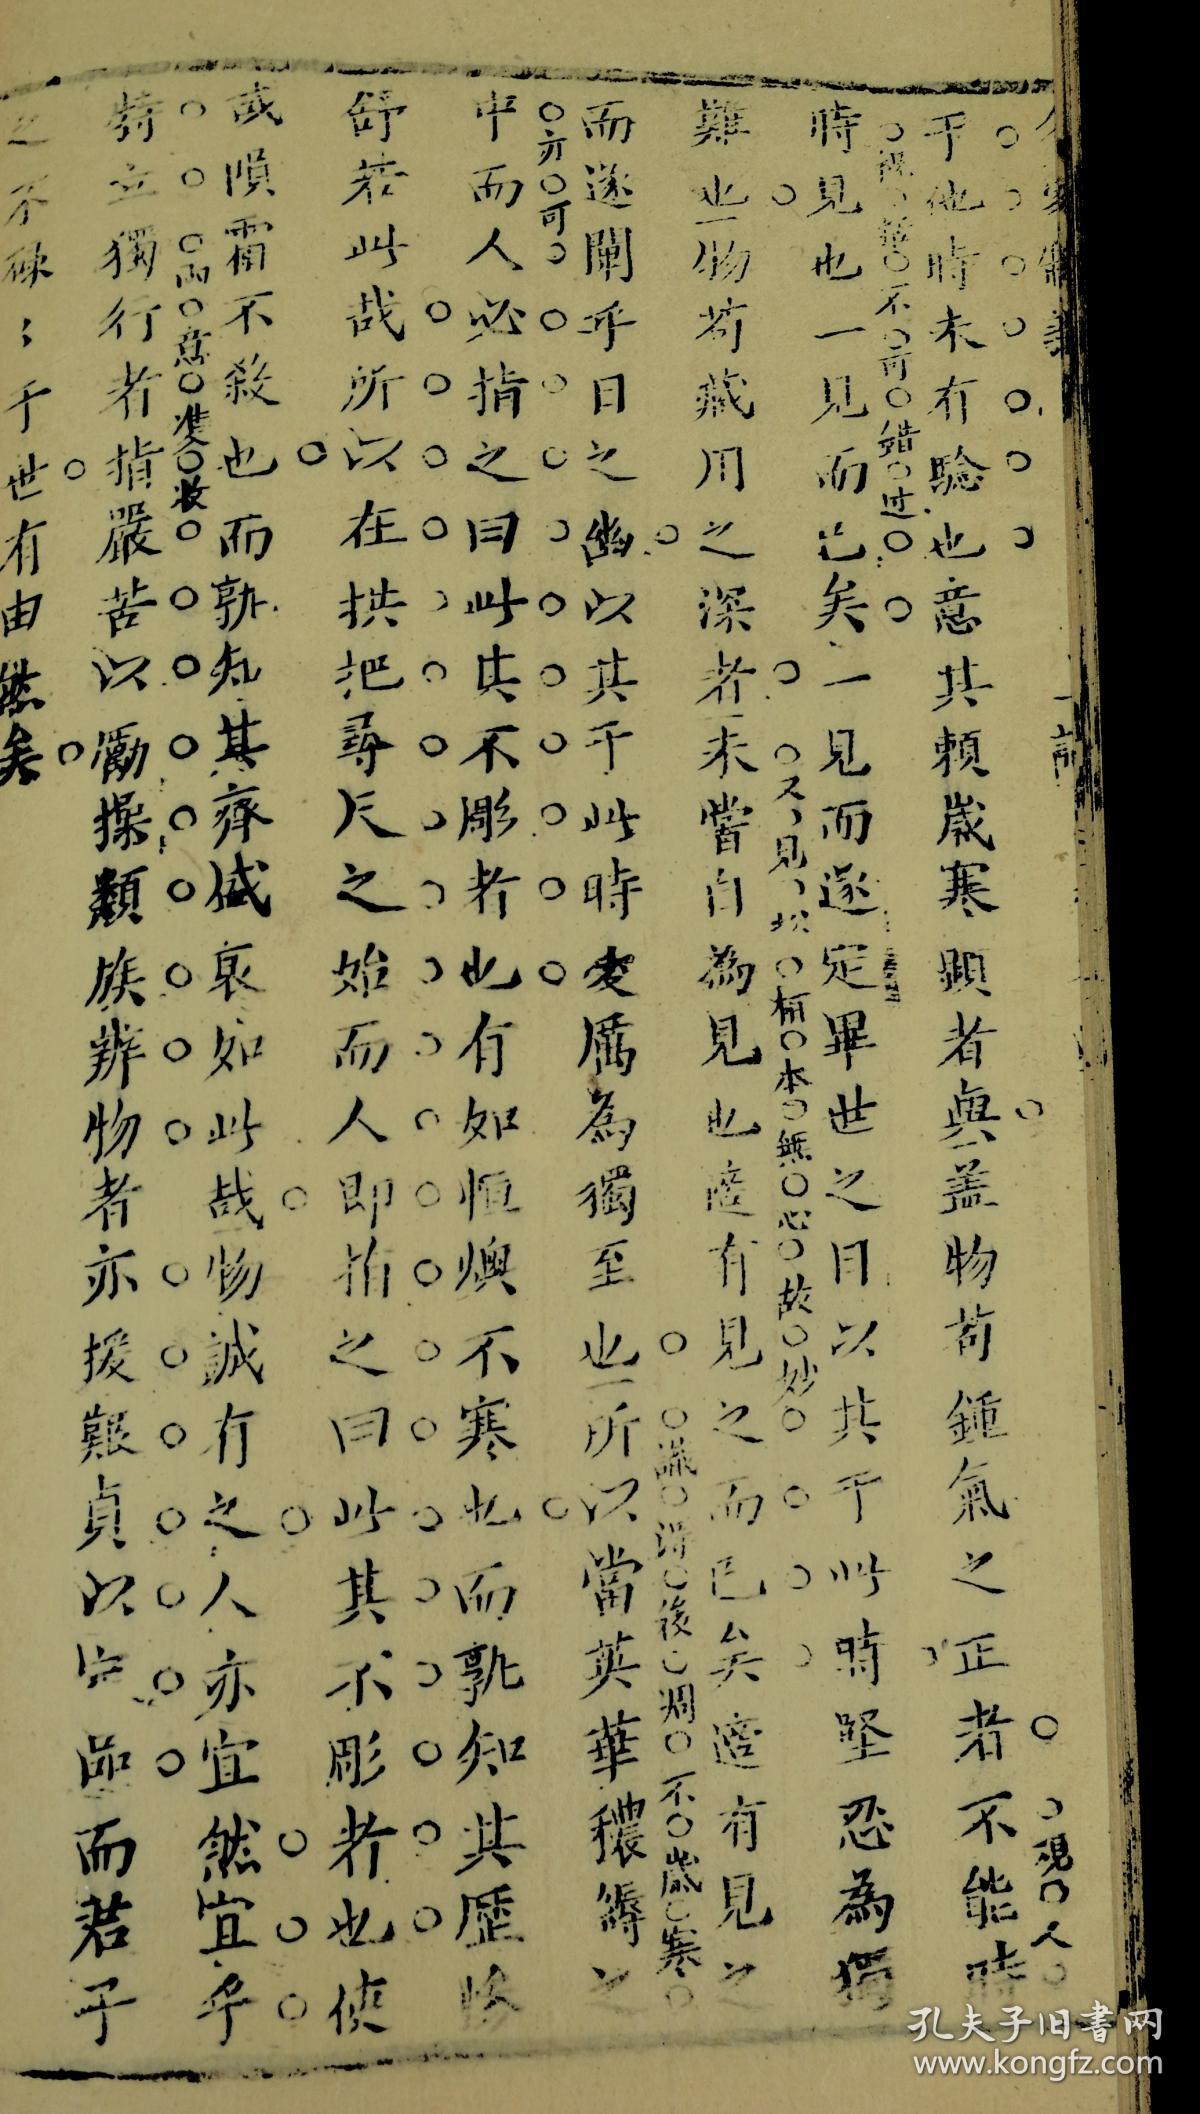 于他時未有驗也意其賴歲寒顯者與蓋物苟鍾氣之正者不能時
時見也一見而已矣一見而遂定畢世之目以其于此時堅忍為獨
難也物苟藏用之深者未嘗自為見也適有見之而已矣適有見之
而遂闡乎日之幽以其于此時凌厲為獨至也所以當英華穠縟之
中而人必指之曰此其不彫者也有如恒燠不寒也而孰知其歷慘
舒若此哉所以在拱把尋尺之始而人即指之曰此其不彫者也使
或隕霜不殺也而孰知其齊盛衰如此哉物誠有之人亦宜然宜乎
特立獨行者指嚴苦以勵操類族辨物者亦援艱貞以定品而君子
之不碌々于世有由然矣
不可錯過
又見
柄本無心故妙
後凋不歲寒
亦可
兩意雙收
現人
孔夫子旧書网
www.kongfz.com